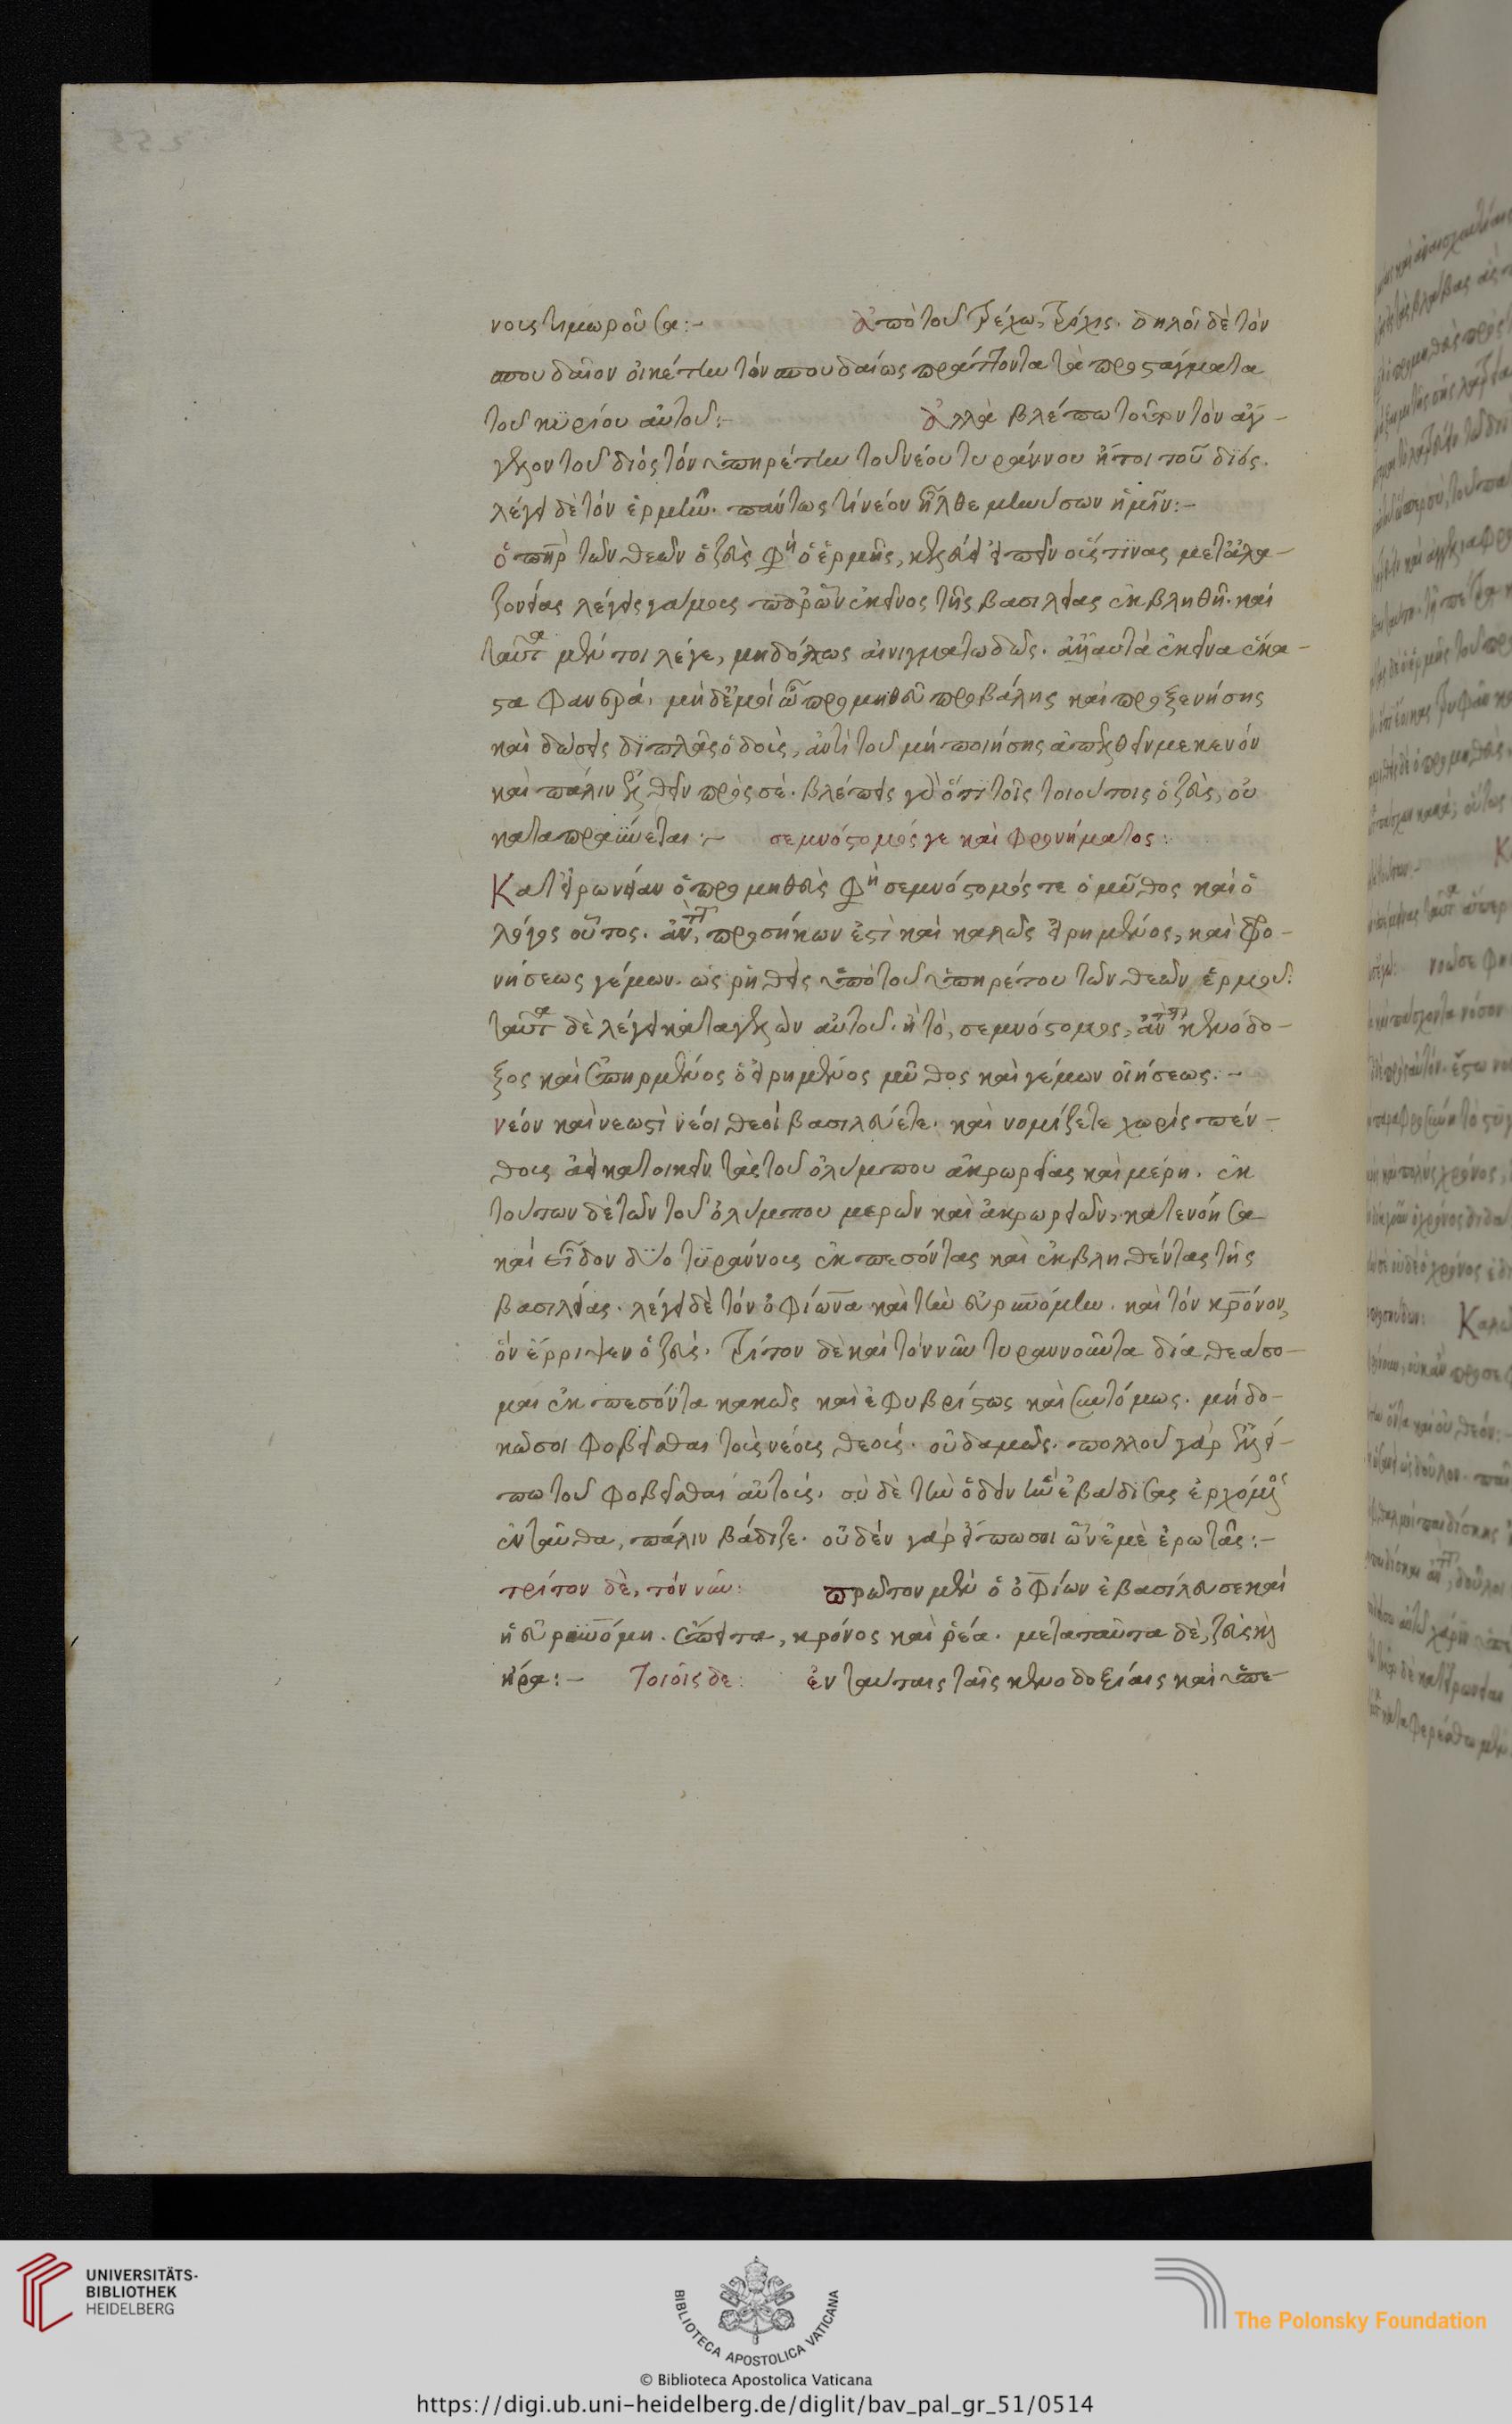 νους τιμωροῦσα:- Ἀπὸ τοῦ τρέχω, τρόχις. δηλοῖ δὲ τὸν
σπουδαῖον οἰκέτην τὸν σπουδαίως πράττοντα τὰ προστάγματα
τοῦ κυρίου αὐτοῦ:- Ἀλλὰ βλέπω τοῦτον τὸν ἄγ-
γελον τοῦ διός τὸν ὑπηρέτην τοῦ νέου τυράννου ἤτοι τοῦ διός.
λέγει δὲ τὸν ἑρμῆν. πάντως τί νέον ἦλθε μηνύσων ἡμῖν:-
ὁ πὴρ τῶν θεῶν ὁ ζεὺς φη ὁ ἑρμῆς, κελεύει εἰπεῖν οὕς τινας
λέγεις γάμους ἐκεῖνος τῆς βασιλείας ἐκβληθῆ. καὶ
ταῦτα μέντοι λέγε, μηδόλως αἰνιγματωδῶς. ἀλλ' αὐτὰ ἐκεῖνα ἕκα-
στα φανερά. μὴ δέ μοι ὦ προμηθεῦ προβάλης καὶ προξενήσης
καὶ δώσεις διπλᾶς ὁδοὺς, ἀντὶ τοῦ μὴ ποιήσης ἀπελθεῖν με κενόν
καὶ πάλιν ἐλθεῖν πρός σέ. βλέπεις γὰρ ὅτι τοῖς τοιούτοις ὁ ζεὺς, οὐ
καταπραΰνεται:- σεμνόστομός γε καὶ φρονήματος:
Κατειρωνείαν ὁ προμηθεὺς φη σεμνόστομός τε ὁ μῦθος καὶ ὁ
λόγος οὗτος. ἀντὶ, προσήκων ἐστὶ καὶ καλῶς εἰρημένος, καὶ φρο-
νήσεως γέμων. ὡς ῥηθεὶς ὑπὸ τοῦ ὑπηρέτου τῶν θεῶν ἑρμοῦ:
ταῦτα δὲ λέγει καταγελῶν αὐτοῦ. ἢ τὸ, σεμνόστομος, ἀντὶ κενόδο-
ξος καὶ ἐπηρμένος ὁ εἰρημένος μῦθος καὶ γέμων οἰήσεως:-
νέον καὶ νεωστὶ νέοι θεοὶ βασιλεύετε. καὶ νομίζετε χωρὶς πέν-
θους ἀεὶ κατοικεῖν τὰς τοῦ ὀλύμπου ἀκρωρείας καὶ μέρη. ἐκ
τούτων δὲ τῶν τοῦ ὀλύμπου μερῶν καὶ ἀκρωρειῶν, κατενόησα
καὶ εἶδον δύο τυράννους ἐκπεσόντας καὶ ἐκβληθέντας τῆς
βασιλείας. λέγει δὲ τὸν ὀφίωνα καὶ τὴν εὐρυνόμην. καὶ τὸν κρόνον,
ὃν ἔρριψεν ὁ ζεύς. τρίτον δὲ καὶ τὸν νῦν τυραννοῦντα δία θεάσο-
μαι ἐκπεσόντα κακῶς καὶ ἐφυβρίστως καὶ συντόμως. μή δο-
κῶ σοι φοβεῖσθαι τοὺς νέους θεούς. οὐδαμῶς. πολλοῦ γὰρ ἐλλεί-
πω τοῦ φοβεῖσθαι αὐτούς. σὺ δὲ τὴν ὁδὸν ἣν ἐβάδισας ἐρχόμενος
ἐνταῦθα, πάλιν βάδιζε. οὐδέν γάρ εἴπω σοι ὧν ἐμὲ ἐρωτᾶς:-
τρίτον δὲ, τὸν νῦν: πρῶτον μὲν ὁ ὀφίων ἐβασίλευσε καὶ
ἡ εὐρυνόμη. ἔπειτα, κρόνος καὶ ῥέα. μετὰ ταῦτα δὲ, ζεὺς καὶ
ἥρα:- Τοιοῖς δε: ἐν ταύταις ταῖς κενοδοξίαις καὶ ὑπε-
UNIVERSITÄTS-
BIBLIOTHEK
HEIDELBERG
BIBLIOTECA APOSTOLICA VATICANA
The Polonsky Foundation
© Biblioteca Apostolica Vaticana
https://digi.ub.uni-heidelberg.de/diglit/bav_pal_gr_51/0514